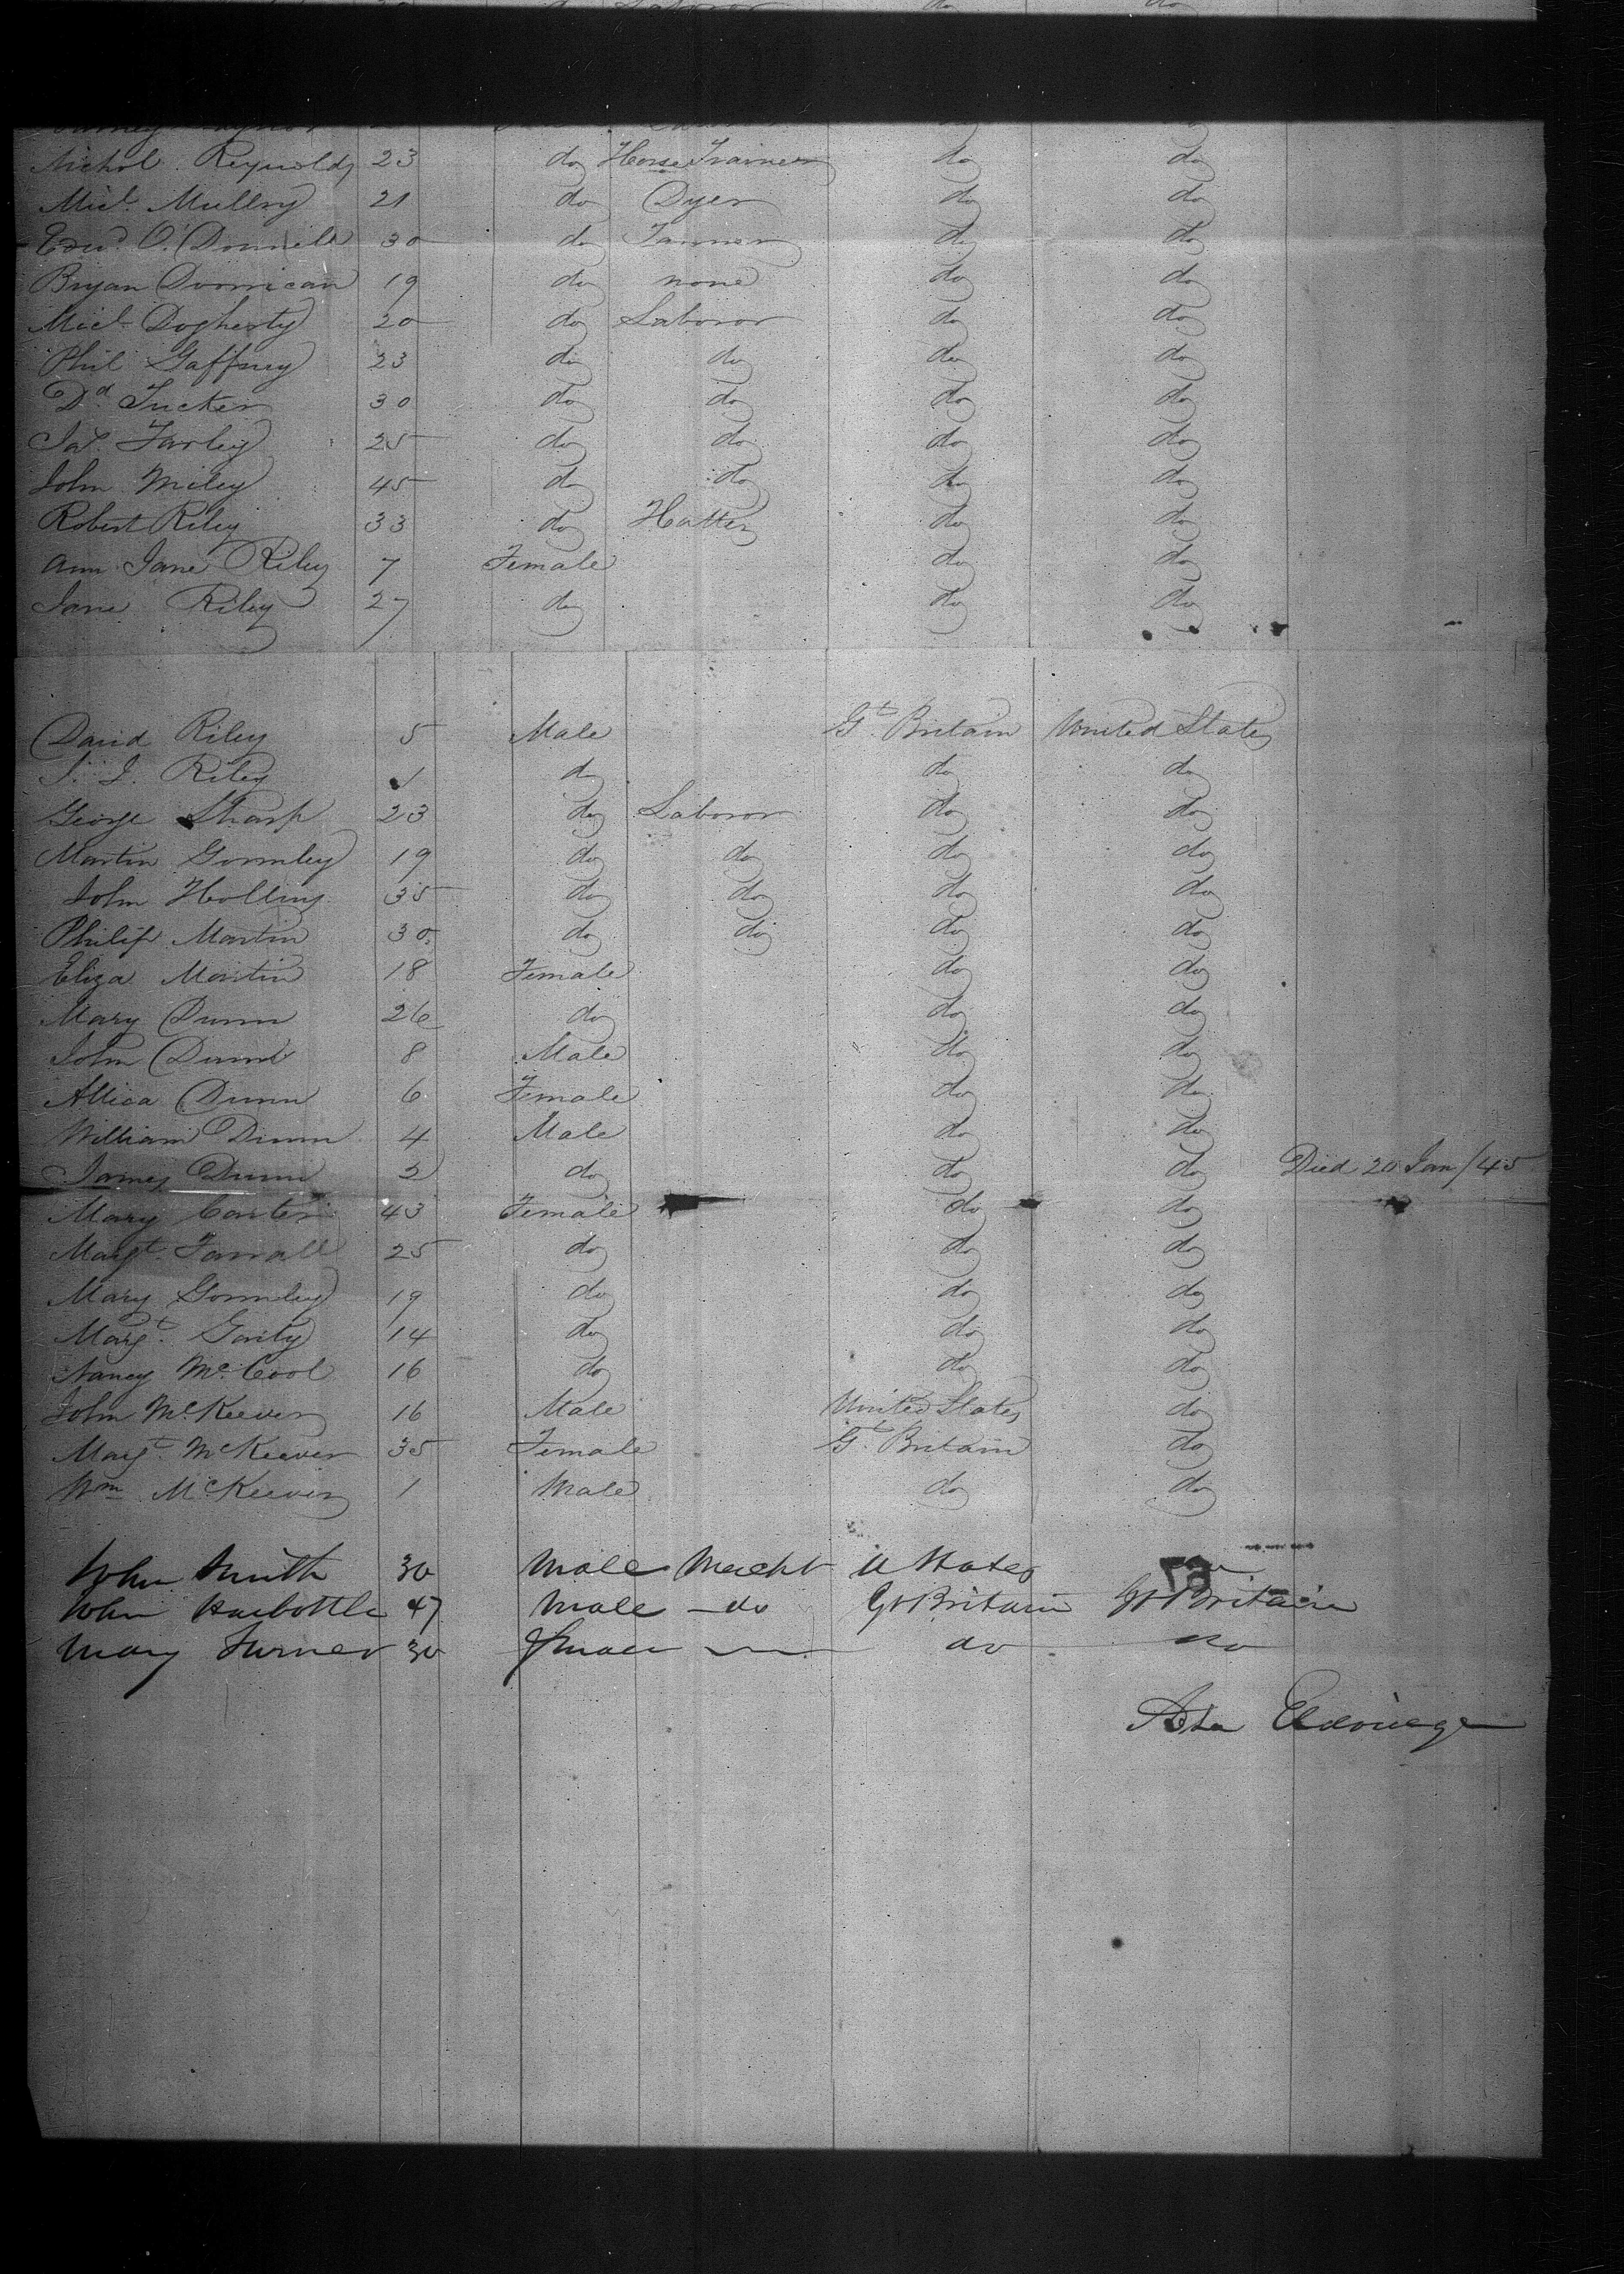 Laboror do do
Nichol. Reynolds 23 do Horse Trainer do do
Micl. Mullry 21 do Dyer do do
Edwd. O. Donnell 30 do Tanner do do
Bryan Dornican 19 do none do do
Micl. Dogherty 20 do Laboror do do
Phil Gaffney 23 do do do do
Dd. Tucker 30 do do do do
Jas. Farley 25 do do do do
John Miley 45 do do do do
Robert Riley 33 do Hatter do do
Ann Jane Riley 7 Female do do
Jane Riley 27 do do do
David Riley 5 Male Gt. Britain United States
Riley 1 do do do
George Sharp 23 do Laboror do do
Martin Gormley 19 do do do do
John Hollins 35 do do do do
Philip Martin 30 do do do do
Eliza Martin 18 Female do do
Mary Dunn 26 do do do
John Dunn 8 Male do do
Allica Dunn 6 Female do do
William Dunn 4 Male do do
James Dunn 2 do do do Died 20 Jan/45
Mary Carter 43 Female do do
Margt. Farrall 25 do do do
Mary Gormley 19 do do do
Margt. Garity 14 do do do
Nancy Mc.Cool 16 do do do
John McKeever 16 Male United States do
Margt. McKeever 35 Female Gt. Britain do
Wm McKeever 1 Male do do
John Smith 30 Male Mercht U States
John Harbottle 47 Male do Gt Britain Gt Britain
Mary Turner 30 Female do do
Asa Eldridge